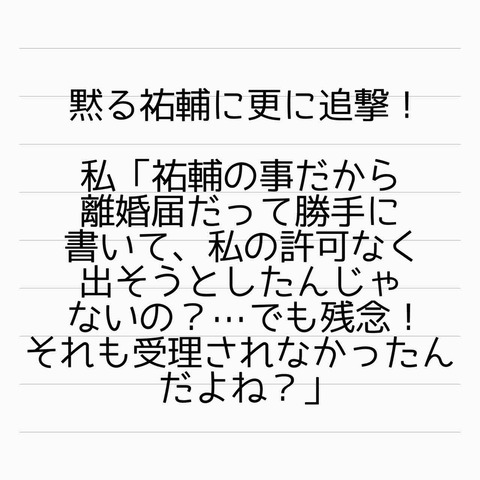 黙る祐輔に更に追撃！
私「祐輔の事だから
離婚届だって勝手に
書いて、私の許可なく
出そうとしたんじゃ
ないの？…でも残念！
それも受理されなかったん
だよね？」